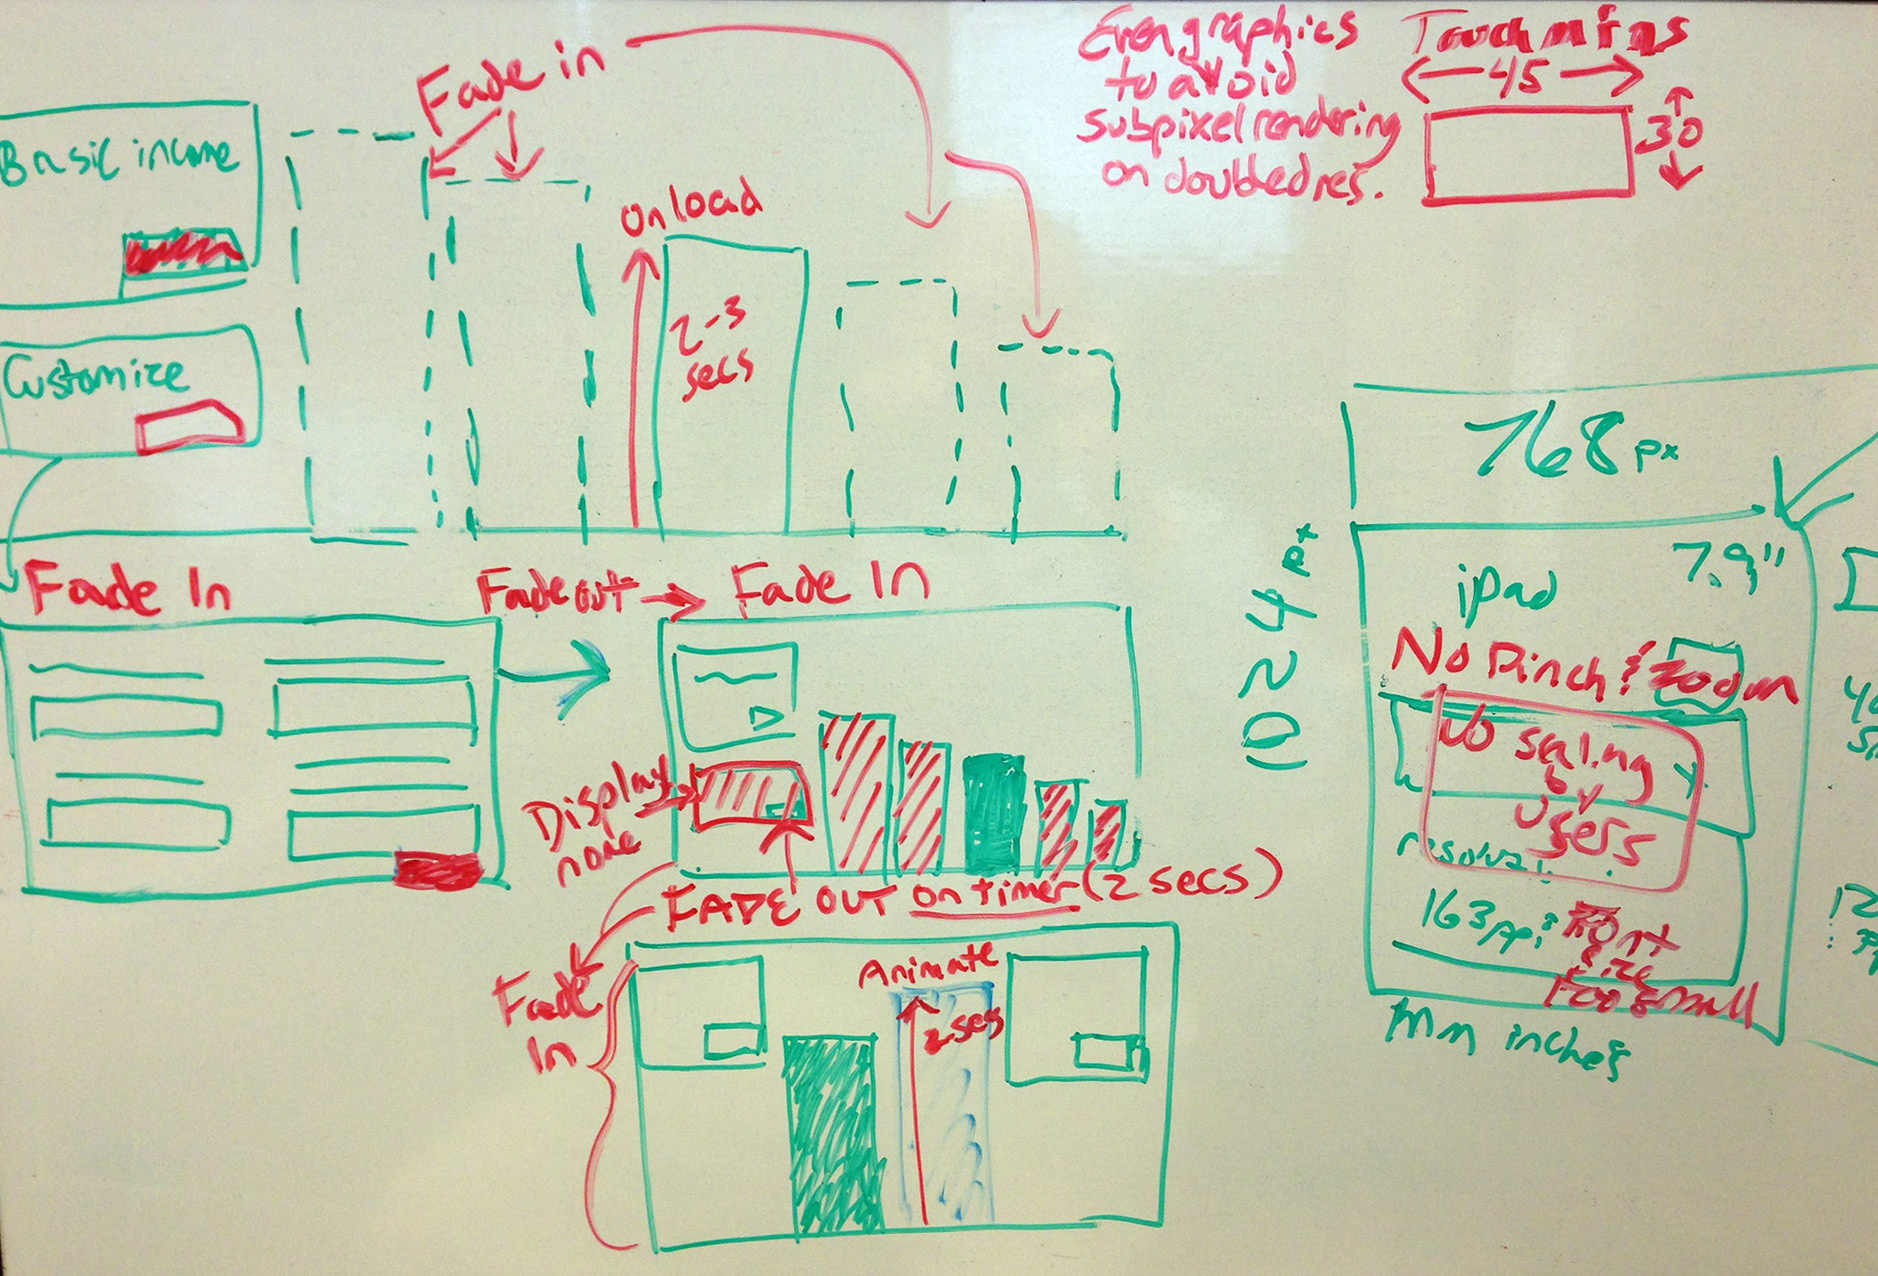 Fade in
Even graphics
to avoid
subpixel rendering
on doubled res.
Touch mfngs
45
30
Basic income
On load
2-3
secs
Customize
768 px
1024 px
7.9"
iPad
No Pinch & Zoom
No scaling
by
users
163ppi
Font
size
too small
mm inches
Fade In
Fade out → Fade In
Display
none
FADE OUT on timer (2 secs)
Fade
In
Animate
2 secs